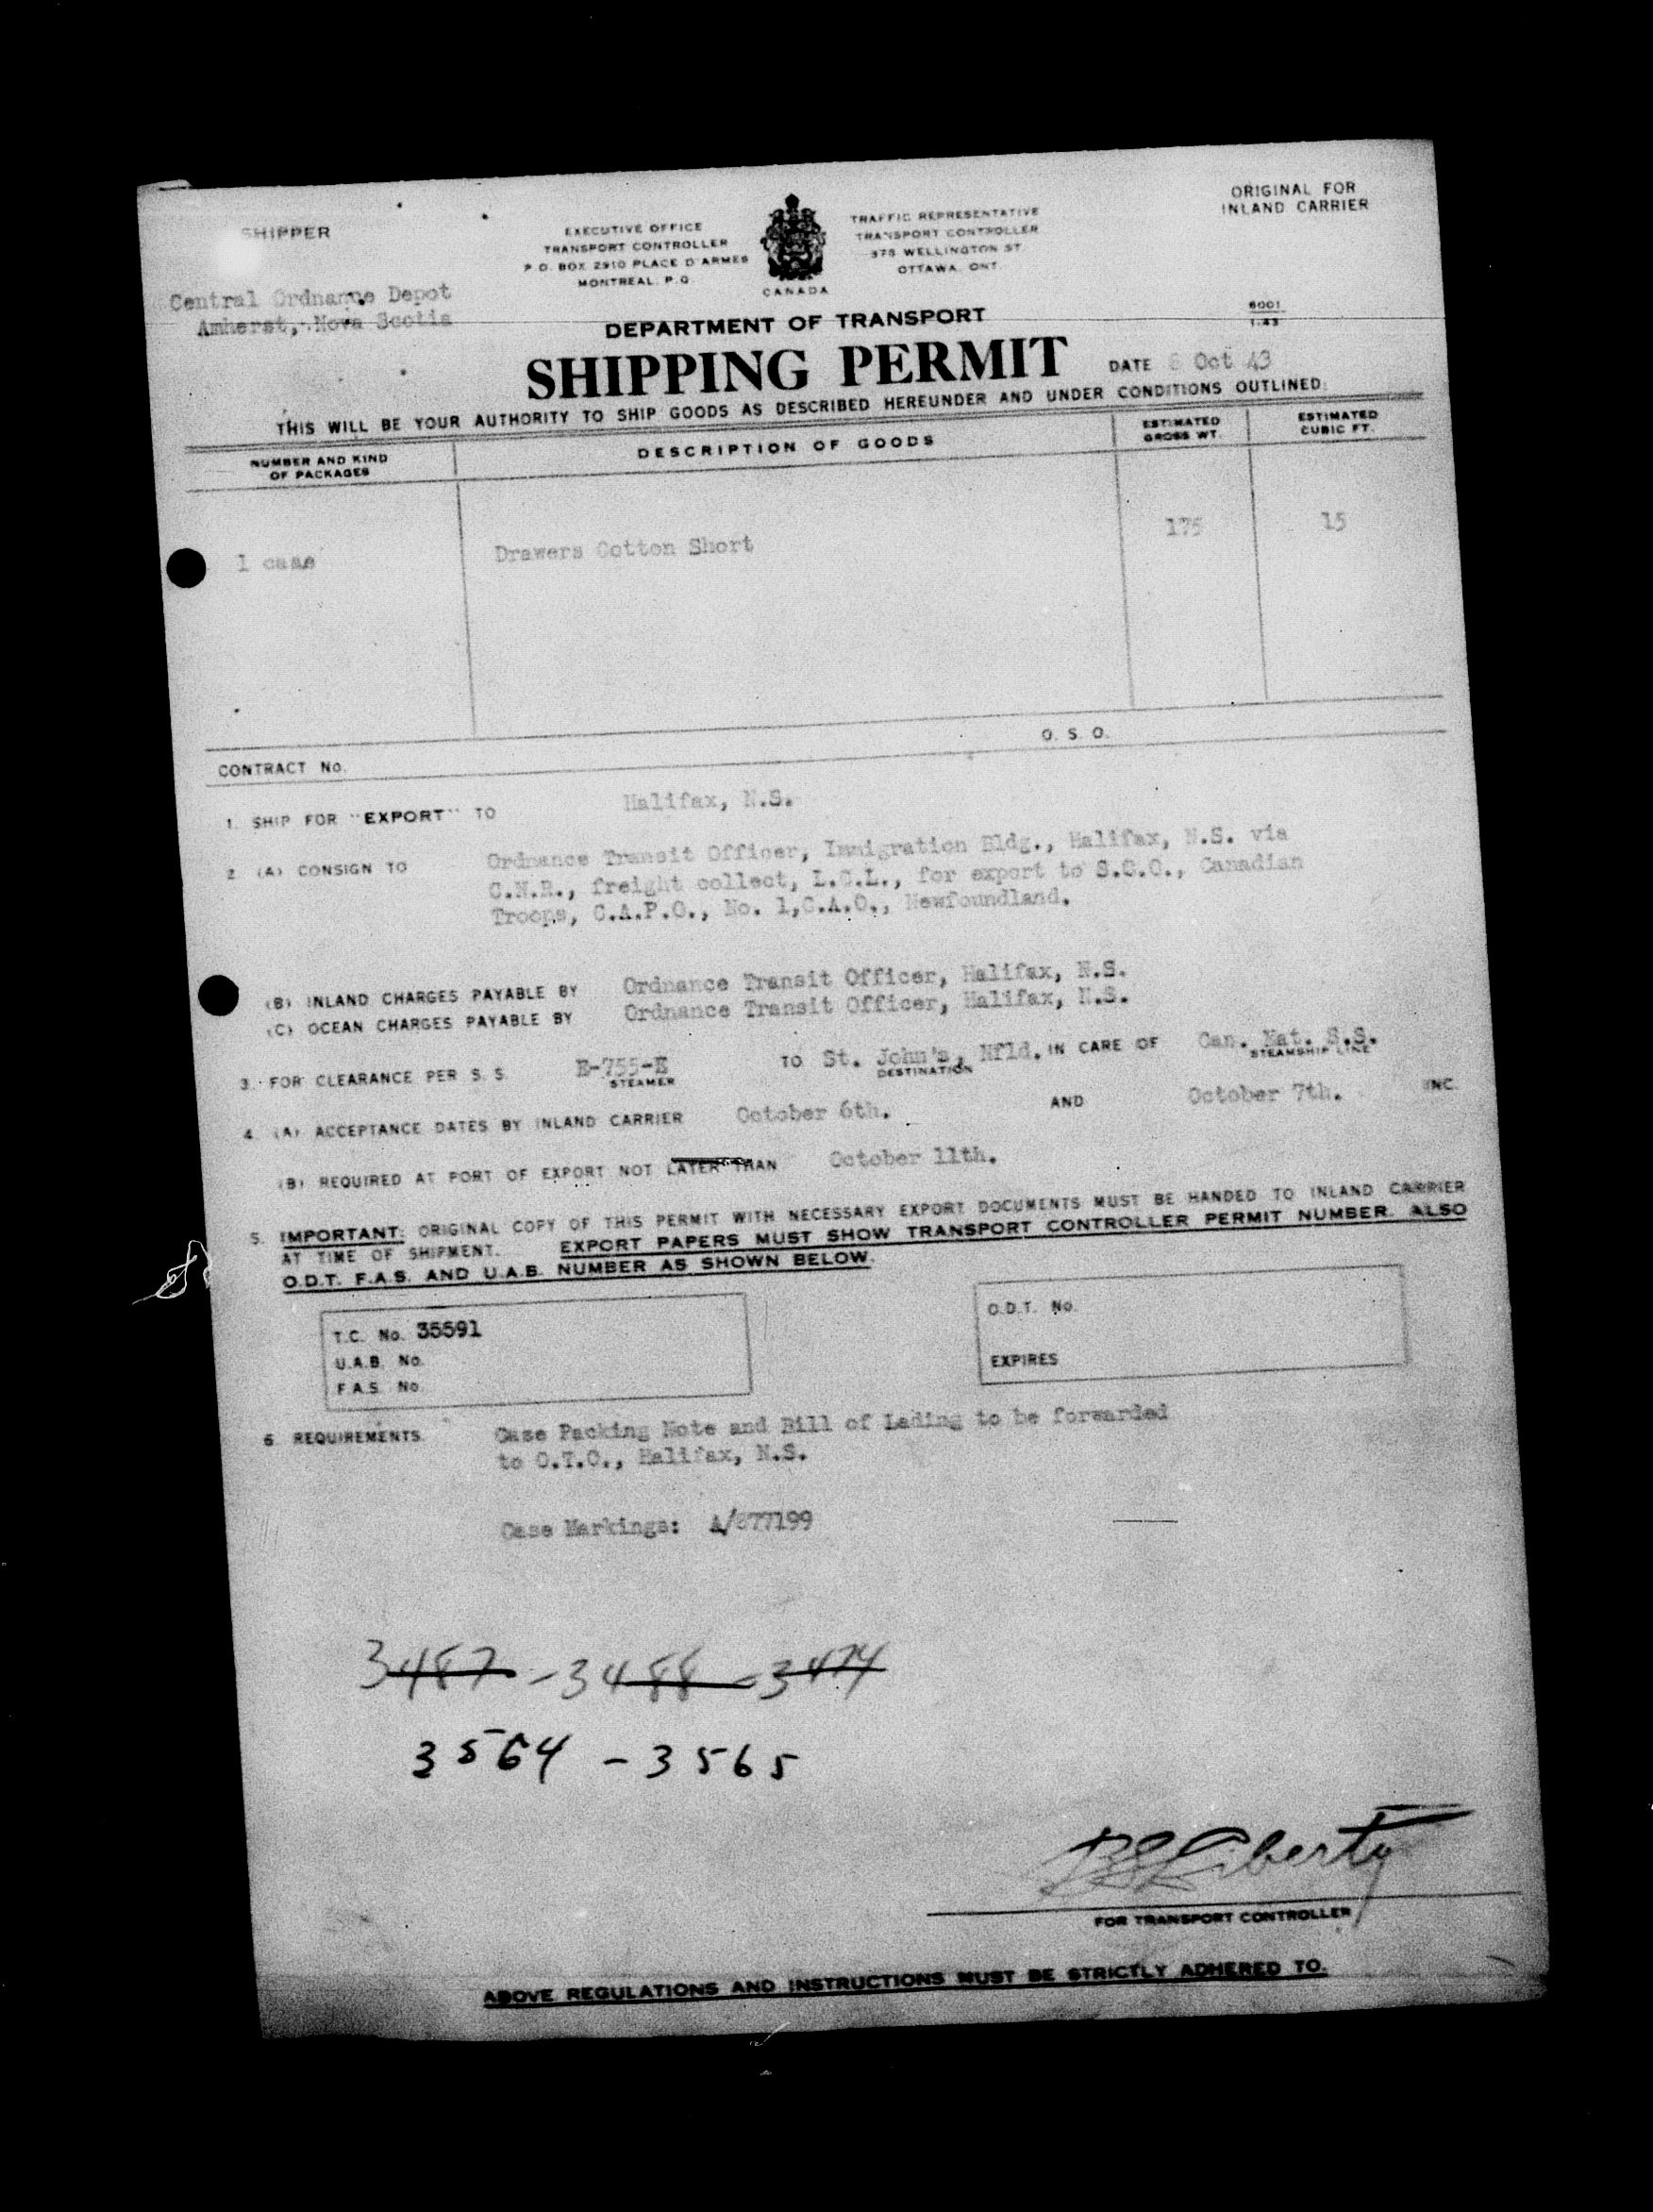 ORIGINAL FOR
INLAND CARRIER
SHIPPER
EXECUTIVE OFFICE
TRANSPORT CONTROLLER
P.O. BOX 2910 PLACE D'ARMES
MONTREAL, P.Q.
CANADA
TRAFFIC REPRESENTATIVE
TRANSPORT CONTROLLER
375 WELLINGTON ST.
OTTAWA, ONT.
Central Ordnance Depot
Amherst, Nova Scotia
6001
1-43
DEPARTMENT OF TRANSPORT
SHIPPING PERMIT
DATE Oct 43
THIS WILL BE YOUR AUTHORITY TO SHIP GOODS AS DESCRIBED HEREUNDER AND UNDER CONDITIONS OUTLINED:
NUMBER AND KIND
OF PACKAGES
DESCRIPTION OF GOODS
ESTIMATED
GROSS WT.
ESTIMATED
CUBIC FT.
1 case Drawers Cotton Short 175 15
CONTRACT No. O. S. O.
1. SHIP FOR "EXPORT" TO Halifax, N.S.
2. (A) CONSIGN TO Ordnance Transit Officer, Immigration Bldg., Halifax, N.S. via
C.N.R., freight collect, L.C.L., for export to S.C.O., Canadian
Troops, C.A.P.O., No. 1,C.A.O., Newfoundland.
(B) INLAND CHARGES PAYABLE BY Ordnance Transit Officer, Halifax, N.S.
(C) OCEAN CHARGES PAYABLE BY Ordnance Transit Officer, Halifax, N.S.
3. FOR CLEARANCE PER S. S. E-755-E TO St. John's, Nfld. IN CARE OF Can. Nat. S.S.
STEAMER DESTINATION STEAMSHIP LINE
4. (A) ACCEPTANCE DATES BY INLAND CARRIER October 6th. AND October 7th. INC.
(B) REQUIRED AT PORT OF EXPORT NOT LATER THAN October 11th.
5. IMPORTANT: ORIGINAL COPY OF THIS PERMIT WITH NECESSARY EXPORT DOCUMENTS MUST BE HANDED TO INLAND CARRIER
AT TIME OF SHIPMENT. EXPORT PAPERS MUST SHOW TRANSPORT CONTROLLER PERMIT NUMBER. ALSO
O.D.T. F.A.S. AND U.A.B. NUMBER AS SHOWN BELOW.
T.C. No. 35591
U.A.B. No.
F.A.S. No.
O.D.T. No.
EXPIRES
6. REQUIREMENTS. Case Packing Note and Bill of Lading to be forwarded
to O.T.O., Halifax, N.S.
Case Markings: A/877199
3487 - 3488 - 3474
3564 - 3565
FOR TRANSPORT CONTROLLER
ABOVE REGULATIONS AND INSTRUCTIONS MUST BE STRICTLY ADHERED TO.